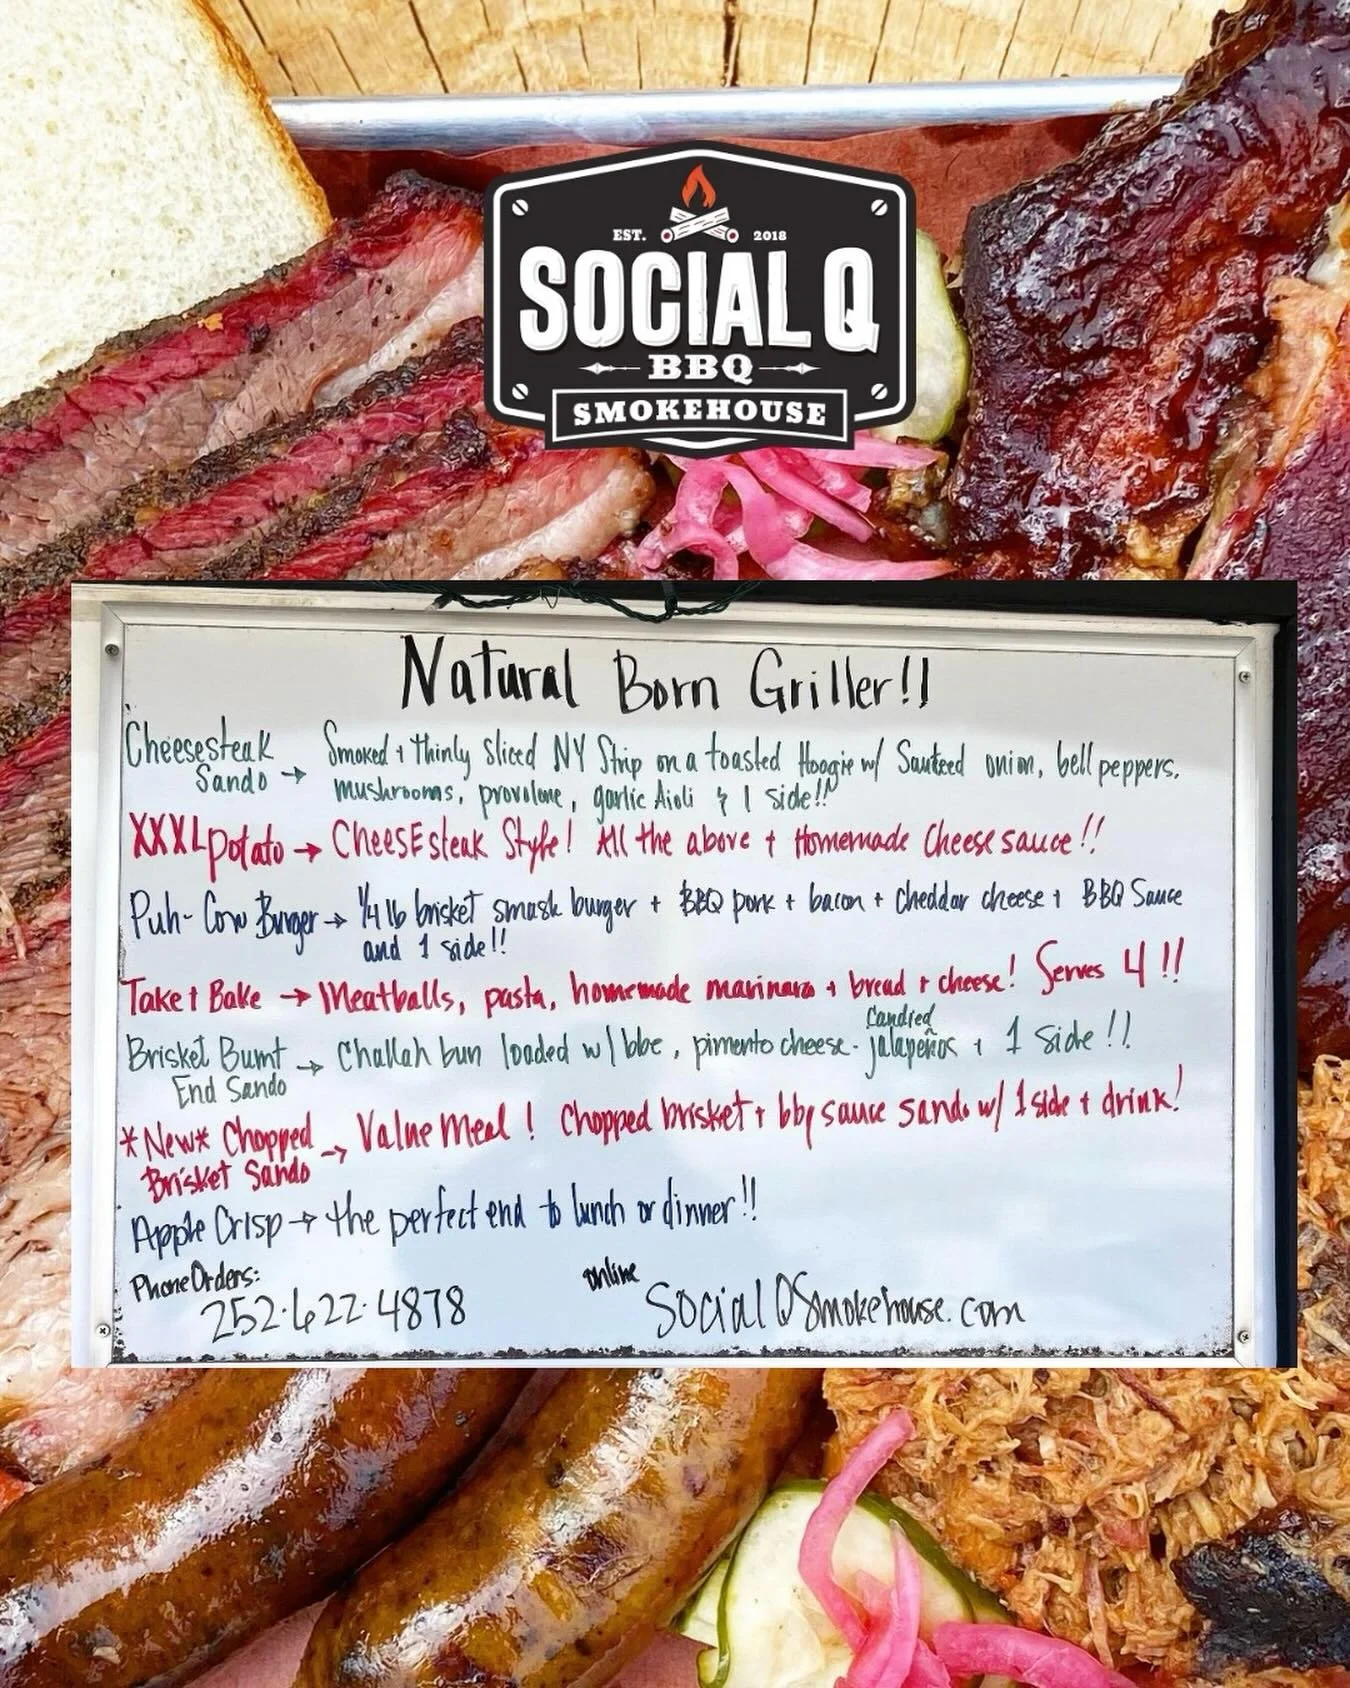 EST. 2018
SOCIAL Q
BBQ
SMOKEHOUSE
Natural Born Griller!!
Cheesesteak Sando → Smoked + thinly sliced NY Strip on a toasted Hoagie w/ Sauteed onion, bell peppers,
mushrooms, provolone, garlic Aioli & 1 side!!
XXXL potato → CheesEsteak Style! All the above + Homemade Cheese sauce!!
Puh-Cow Burger → 1/4 lb brisket smash burger + BBQ pork + bacon + cheddar cheese + BBQ Sauce
and 1 side!!
Take + Bake → Meatballs, pasta, homemade marinara + bread + cheese! Serves 4!!
Brisket Burnt End Sando → Challah bun loaded w/ bbe, pimento cheese - Candied jalapeños + 1 Side!!
*New* Chopped Brisket Sando → Value Meal! Chopped brisket + bbq sauce sando w/ 1 side + drink!
Apple Crisp → the perfect end to lunch or dinner!!
Phone Orders:
252.622.4878
online
SocialQSmokehouse.com